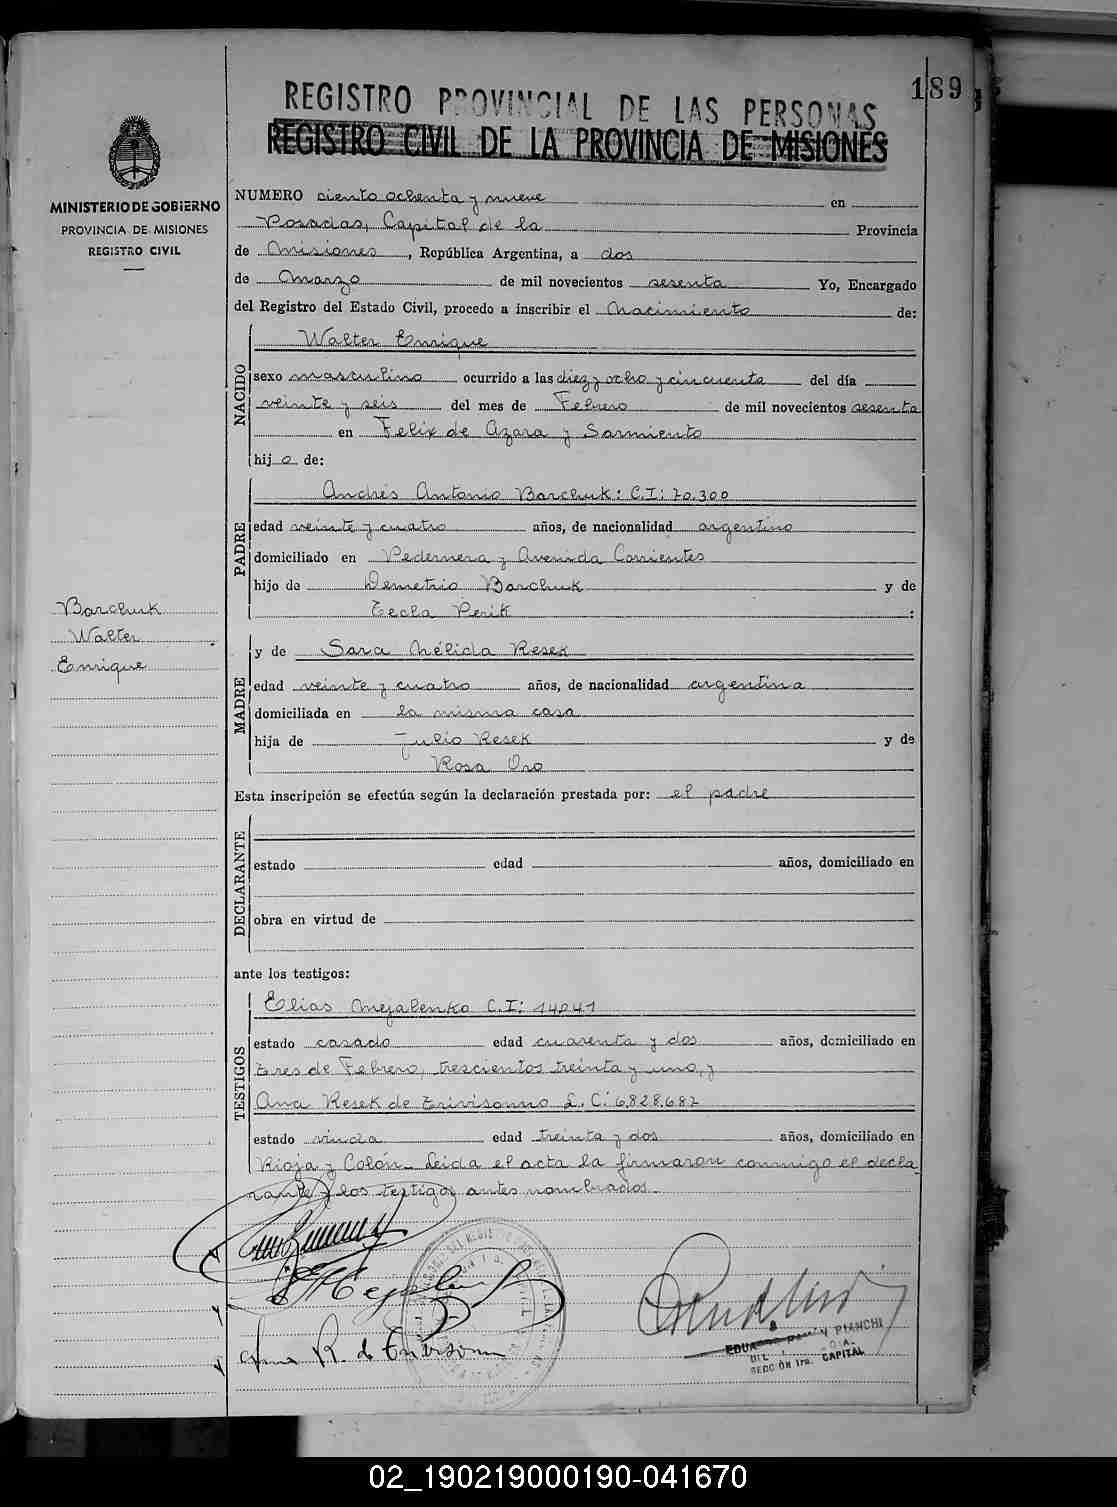 189
REGISTRO PROVINCIAL DE LAS PERSONAS
REGISTRO CIVIL DE LA PROVINCIA DE MISIONES
MINISTERIO DE GOBIERNO
PROVINCIA DE MISIONES
REGISTRO CIVIL
NUMERO ciento ochenta y nueve en
Posadas, Capital de la Provincia
de Misiones, República Argentina, a dos
de Marzo de mil novecientos sesenta Yo, Encargado
del Registro del Estado Civil, procedo a inscribir el Nacimiento de:
NACIDO
Walter Enrique
sexo masculino ocurrido a las diez y ocho y cincuenta del día
veinte y seis del mes de Febrero de mil novecientos sesenta
en Felix de Azara y Sarmiento
hijo de:
PADRE
Andrés Antonio Barchuk: C.I: 70.300
edad veinte y cuatro años, de nacionalidad argentino
domiciliado en Pedernera y Avenida Corrientes
hijo de Demetrio Barchuk y de
Tecla Perik :
Barchuk
Walter
Enrique
MADRE
y de Sara Nélida Resek
edad veinte y cuatro años, de nacionalidad argentina
domiciliada en la misma casa
hija de Julio Resek y de
Rosa Oro
Esta inscripción se efectúa según la declaración prestada por: el padre
DECLARANTE
estado edad años, domiciliado en
obra en virtud de
ante los testigos:
TESTIGOS
Elias Mejalenko C.I: 14841
estado casado edad cuarenta y dos años, domiciliado en
tres de Febrero, trescientos treinta y uno, y
Ana Resek de Trivisonno L. C: 6.828.687
estado viuda edad treinta y dos años, domiciliado en
Rioja y Colón_ Leida el acta la firmaron conmigo el decla
rante y los testigos antes nombrados._
Ana R. de Trivisonno
BIANCHI
SECCIÓN 1ra. CAPITAL
02_190219000190-041670